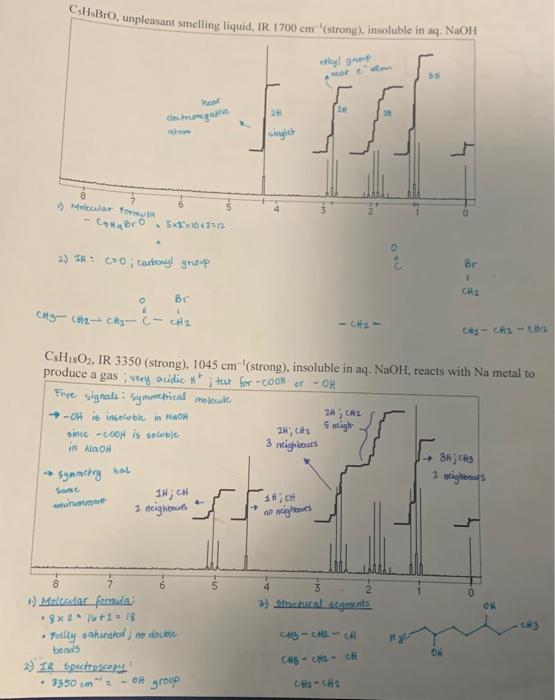 C5H9BrO, unpleasant smelling liquid, IR 1700 cm⁻¹(strong), insoluble in aq. NaOH
ethyl group
near e⁻ atom
3H
near
electronegative
atom
2H
singlet
2H
2H
8 7 6 5 4 3 2 1 0
1) Molecular Formula
- C5H9BrO , 5x2=10+2=12
2) IR : C=O ; carbonyl group
O
C
Br
CH2
O Br
CH3- CH2- CH2- C - CH2
- CH2 -
CH2 - CH2 - CH2
C8H18O2, IR 3350 (strong), 1045 cm⁻¹(strong), insoluble in aq. NaOH, reacts with Na metal to
produce a gas ; very acidic H⁺ ; test for -COOH or -OH
Five signals : symmetrical molecule
→ -OH is insoluble in NaOH
since -COOH is soluble
in NaOH
→ symmetry has
same
environment
2H ; CH2
5 neigh
2H ; CH2
3 neighbours
→ 3H ; CH3
2 neighbours
1H ; CH
2 neighbours
1H ; CH
no neighbours
8 7 6 5 4 3 2 1 0
1) Molecular formula:
• 8 x 2 = 16 + 2 = 18
• Fully saturated ; no double
bonds
2) IR Spectroscopy :
• 3350 cm⁻¹ = - OH group
3) Structural segments
CH3 - CH2 - CH
CH3 - CH2 - CH
CH2 - CH2
OH
CH3
H3C
OH